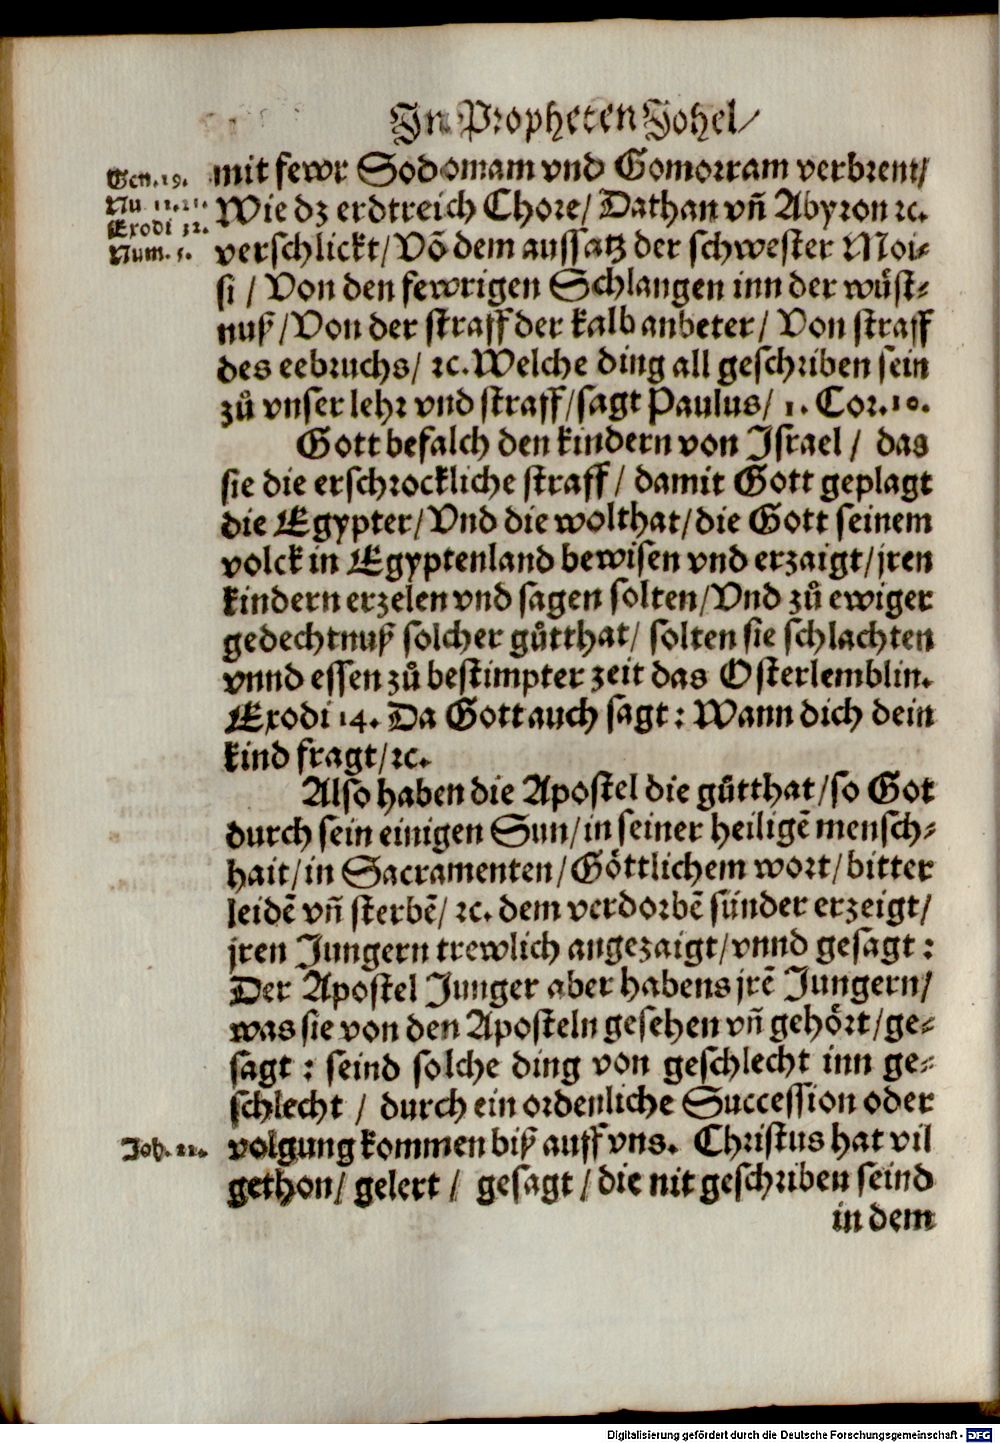 In Propheten Johel/
Gen. 19. mit fewr Sodomam vnd Gomorram verbrent/
Nu 11.21. Wie dz erdtreich Chore/ Dathan vñ Abyron ꝛc.
Exodi 32.
Num. 5. verschlickt/ Võ dem aussatz der schwester Moi-
si / Von den fewrigen Schlangen inn der wüst-
nuß/ Von der straff der kalb anbeter/ Von straff
des eebruchs/ ꝛc. Welche ding all geschriben sein
zů vnser lehr vnd straff/ sagt Paulus/ 1. Cor. 10.
Gott befalch den kindern von Israel / das
sie die erschrockliche straff / damit Gott geplagt
die Egypter/ Vnd die wolthat/ die Gott seinem
volck in Egyptenland bewisen vnd erzaigt/ jren
kindern erzelen vnd sagen solten/ Vnd zů ewiger
gedechtnuß solcher gůtthat/ solten sie schlachten
vnnd essen zů bestimpter zeit das Osterlemblin.
Exodi 14. Da Gott auch sagt: Wann dich dein
kind fragt/ ꝛc.
Also haben die Apostel die gůtthat/ so Got
durch sein einigen Sun/ in seiner heiligẽ mensch-
hait/ in Sacramenten/ Göttlichem wort/ bitter
leidẽ vñ sterbẽ/ ꝛc. dem verdorbẽ sünder erzeigt/
jren Jungern trewlich angezaigt/ vnnd gesagt:
Der Apostel Junger aber habens jrẽ Jungern/
was sie von den Aposteln gesehen vñ gehört/ ge-
sagt: seind solche ding von geschlecht inn ge-
schlecht / durch ein ordenliche Succession oder
Joh. 21. volgung kommen biß auff vns. Christus hat vil
gethon/ gelert / gesagt / die nit geschriben seind
in dem
Digitalisierung gefördert durch die Deutsche Forschungsgemeinschaft - DFG